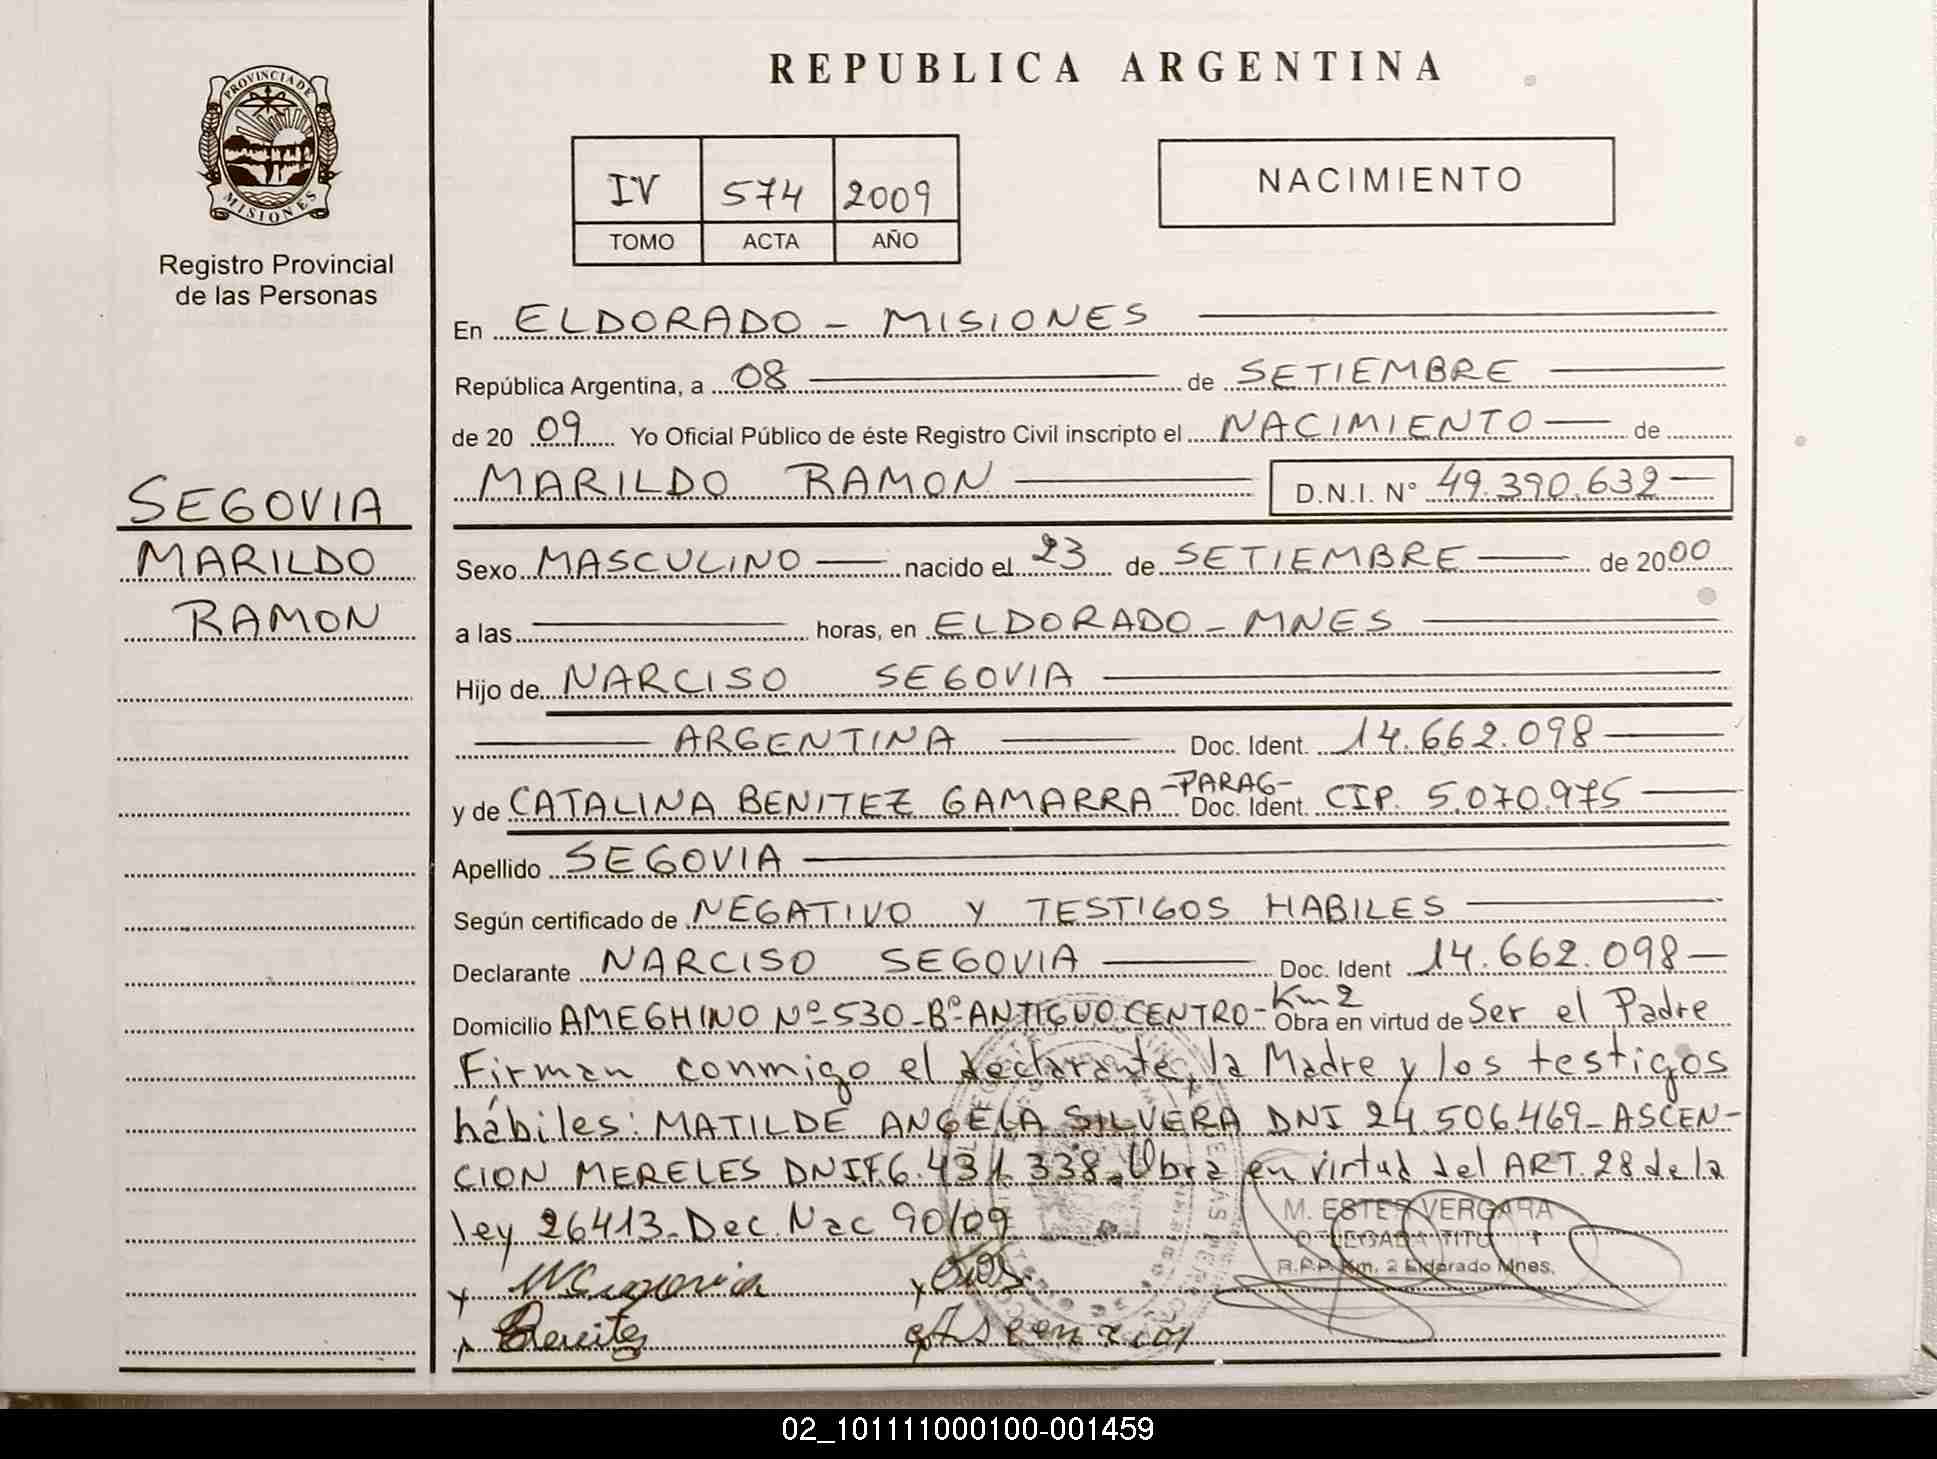 PROVINCIA DE
MISIONES
Registro Provincial
de las Personas
SEGOVIA
MARILDO
RAMON
REPUBLICA ARGENTINA
IV 574 2009
TOMO ACTA AÑO
NACIMIENTO
En ELDORADO - MISIONES
República Argentina, a 08 de SETIEMBRE
de 20 09 Yo Oficial Público de éste Registro Civil inscripto el NACIMIENTO de
MARILDO RAMON D.N.I. N° 49.390.632
Sexo MASCULINO nacido el 23 de SETIEMBRE de 2000
a las horas, en ELDORADO - MNES
Hijo de NARCISO SEGOVIA
ARGENTINA Doc. Ident. 14.662.098
y de CATALINA BENITEZ GAMARRA -PARAG- Doc. Ident. CIP. 5.070.975
Apellido SEGOVIA
Según certificado de NEGATIVO Y TESTIGOS HABILES
Declarante NARCISO SEGOVIA Doc. Ident 14.662.098
Domicilio AMEGHINO Nº 530 - Bº ANTIGUO CENTRO - Km 2 Obra en virtud de Ser el Padre
Firman conmigo el declarante, la Madre y los testigos
hábiles: MATILDE ANGELA SILVERA DNI 24.506.469 - ASCEN-
CION MERELES DNIF 6.431.338. Obra en virtud del ART. 28 de la
ley 26413 - Dec. Nac 90/09
M. ESTER VERGARA
DELEGADA TITULAR
R.P.P. Km. 2 Eldorado Mnes.
02_101111000100-001459